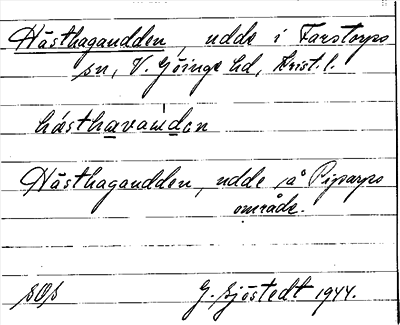 Hästhagaudden, udde i Farstorps
sn, V. Göinge hd, Krist. l.
Hästhagaudden, udde på Piparps
område.
SOS G. Sjöstedt 1944.